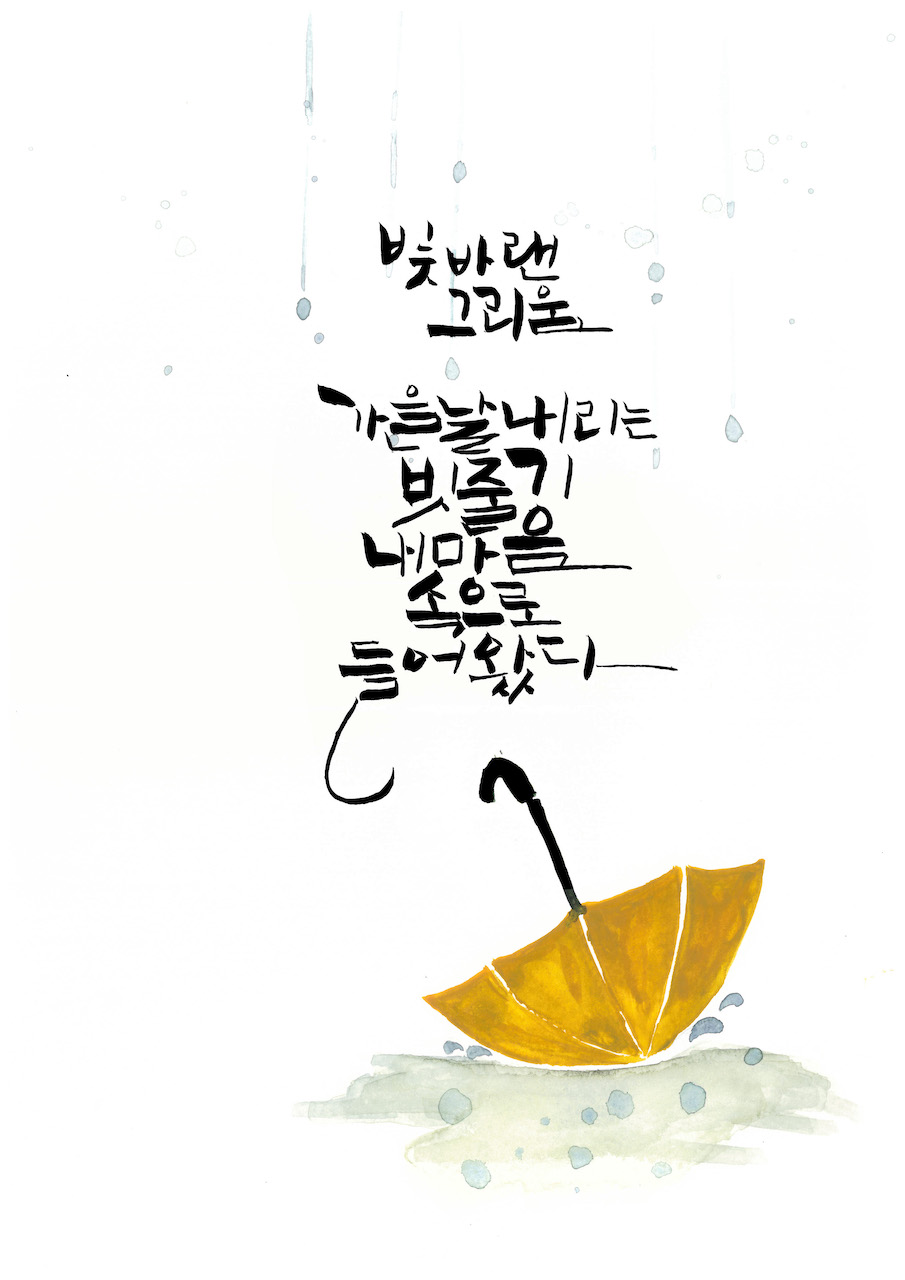 빛바랜
그리움
가을날 내리는
빗줄기
내 마음
속으로
들어왔다